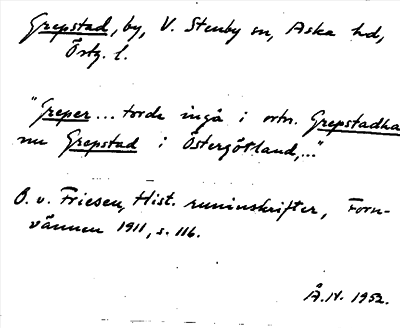 Grepstad, by, V. Stenby sn, Aska hd,
Östg. l.
"Greper ... torde ingå i ortn. Grepstadha
nu Grepstad i Östergötland,..."
O. v. Friesen, Hist. runinskrifter, Forn-
vännen 1911, s. 116.
Å.N. 1952.